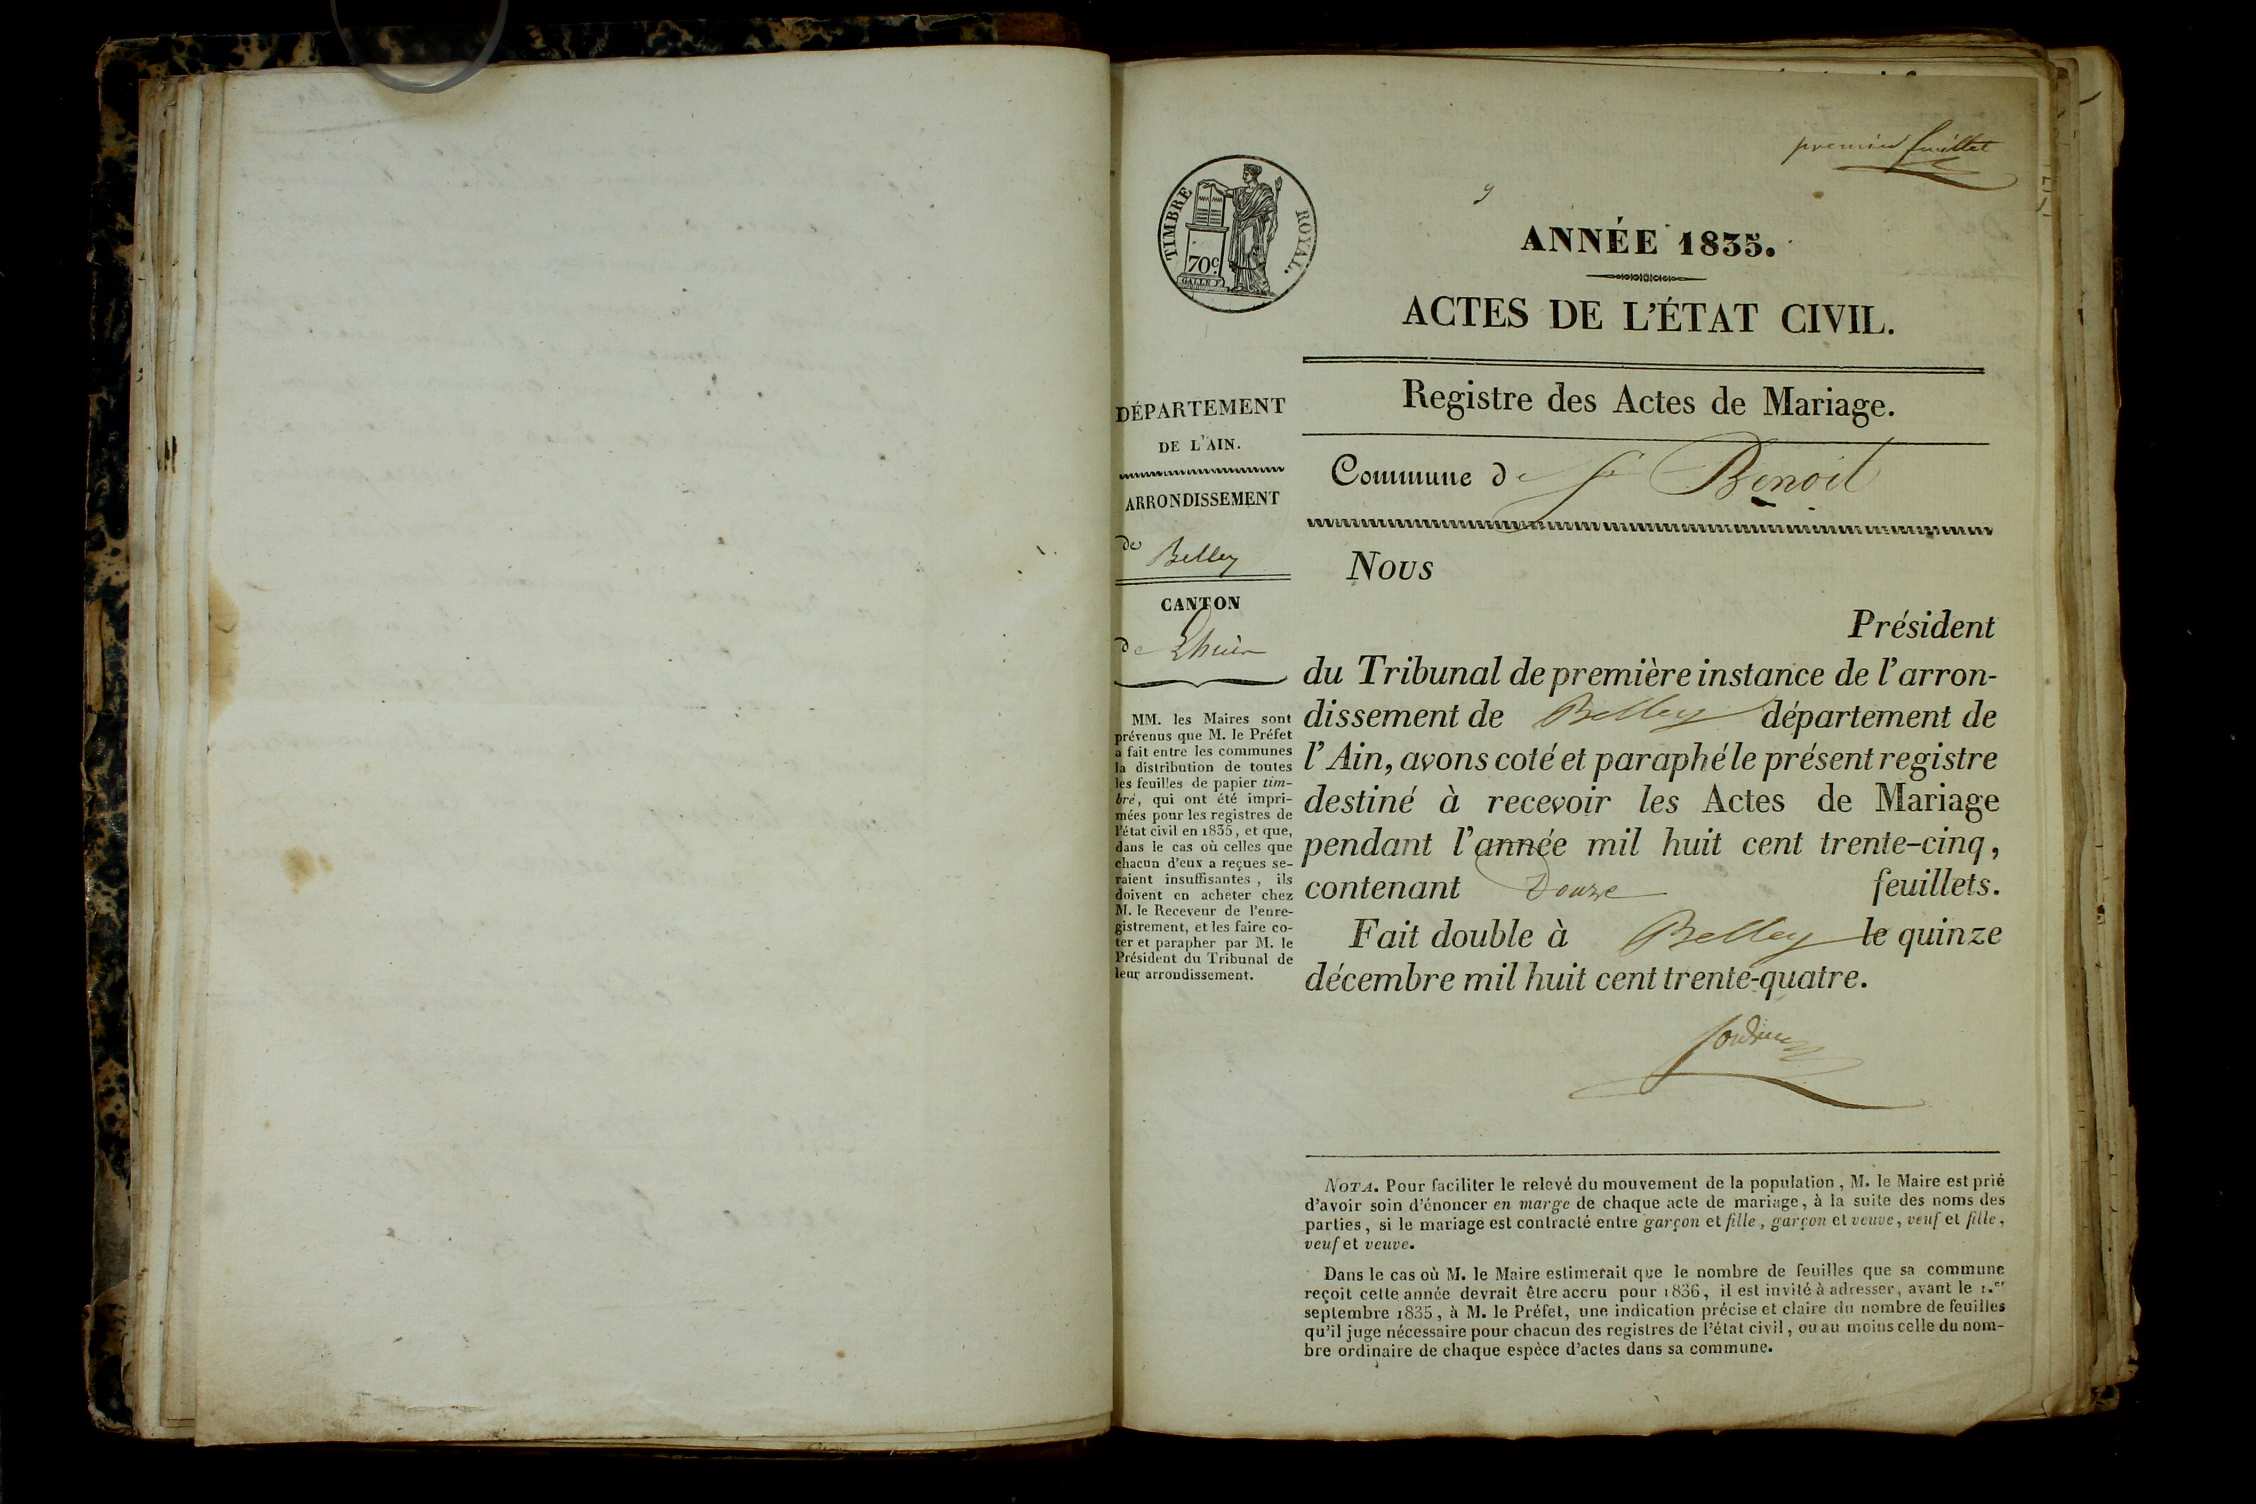 premier feuillet
TIMBRE ROYAL.
70c.
ANNÉE 1835.
ACTES DE L'ÉTAT CIVIL.
Registre des Actes de Mariage.
Commune de St Benoit
DÉPARTEMENT
DE L'AIN.
ARRONDISSEMENT
de Belley
CANTON
de Lhuis
MM. les Maires sont
prévenus que M. le Préfet
a fait entre les communes
la distribution de toutes
les feuilles de papier tim-
bré, qui ont été impri-
mées pour les registres de
l'état civil en 1835, et que,
dans le cas où celles que
chacun d'eux a reçues se-
raient insuffisantes, ils
doivent en acheter chez
M. le Receveur de l'enre-
gistrement, et les faire co-
ter et parapher par M. le
Président du Tribunal de
leur arrondissement.
Nous
Président
du Tribunal de première instance de l'arron-
dissement de Belley département de
l'Ain, avons coté et paraphé le présent registre
destiné à recevoir les Actes de Mariage
pendant l'année mil huit cent trente-cinq,
contenant Douze feuillets.
Fait double à Belley le quinze
décembre mil huit cent trente-quatre.
NOTA. Pour faciliter le relevé du mouvement de la population, M. le Maire est prié
d'avoir soin d'énoncer en marge de chaque acte de mariage, à la suite des noms des
parties, si le mariage est contracté entre garçon et fille, garçon et veuve, veuf et fille,
veuf et veuve.
Dans le cas où M. le Maire estimerait que le nombre de feuilles que sa commune
reçoit cette année devrait être accru pour 1836, il est invité à adresser, avant le 1.er
septembre 1835, à M. le Préfet, une indication précise et claire du nombre de feuilles
qu'il juge nécessaire pour chacun des registres de l'état civil, ou au moins celle du nom-
bre ordinaire de chaque espèce d'actes dans sa commune.